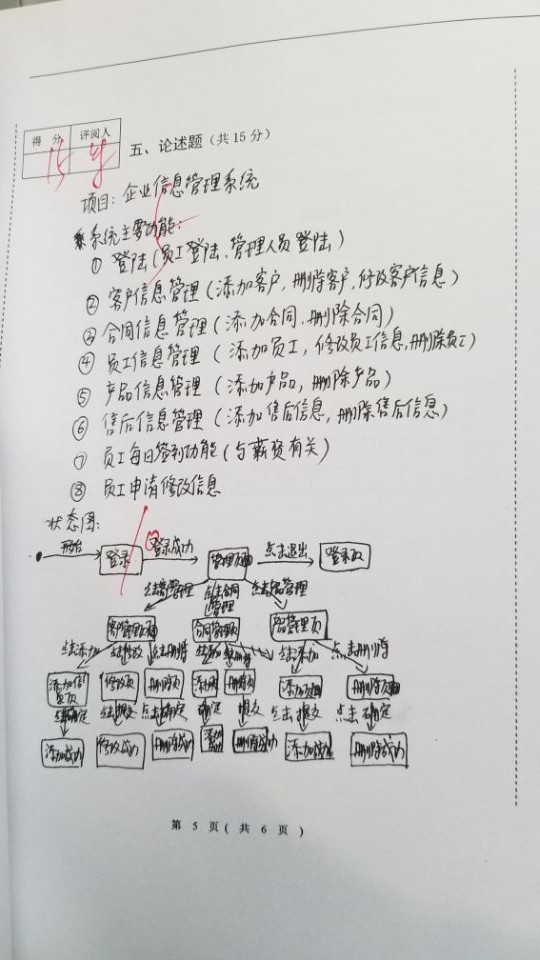 得 分 评阅人
15
五、论述题（共 15 分）
项目：企业信息管理系统
系统主要功能：
① 登陆（员工登陆、管理人员登陆）
② 客户信息管理（添加客户，删除客户，修改客户信息）
③ 合同信息管理（添加合同，删除合同）
④ 员工信息管理（添加员工，修改员工信息，删除员工）
⑤ 产品信息管理（添加产品，删除产品）
⑥ 售后信息管理（添加售后信息，删除售后信息）
⑦ 员工每日签到功能（与薪资有关）
⑧ 员工申请修改信息
状态图：
开始 登录 登录成功 管理页面 点击退出 登录页
点击合同管理
客户管理页面 合同管理页
点击添加 点击修改 点击删除 点击添加 点击添加 点击删除
修改页 删除页 删除页 添加页面 删除页面
点击确定 点击提交 点击确定 确定 提交 点击提交 点击确定
添加成功 修改成功 删除成功 删除成功 添加成功 删除成功
第 5 页（ 共 6 页 ）